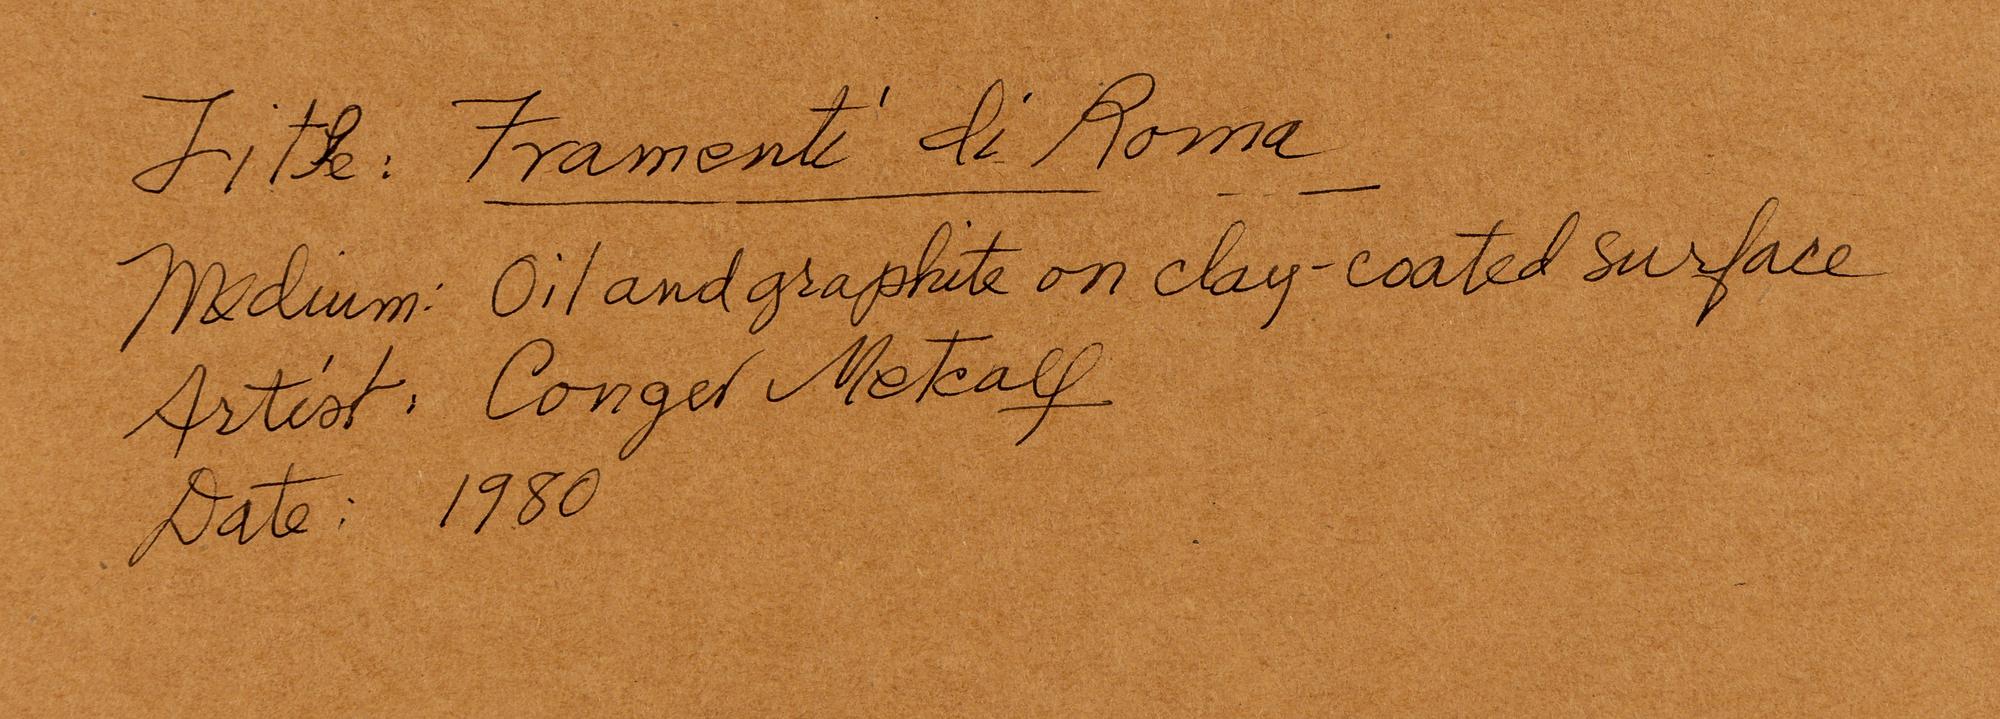 Title: Framenti di Roma
Medium: Oil and graphite on clay-coated surface
Artist: Conger Metcalf
Date: 1980